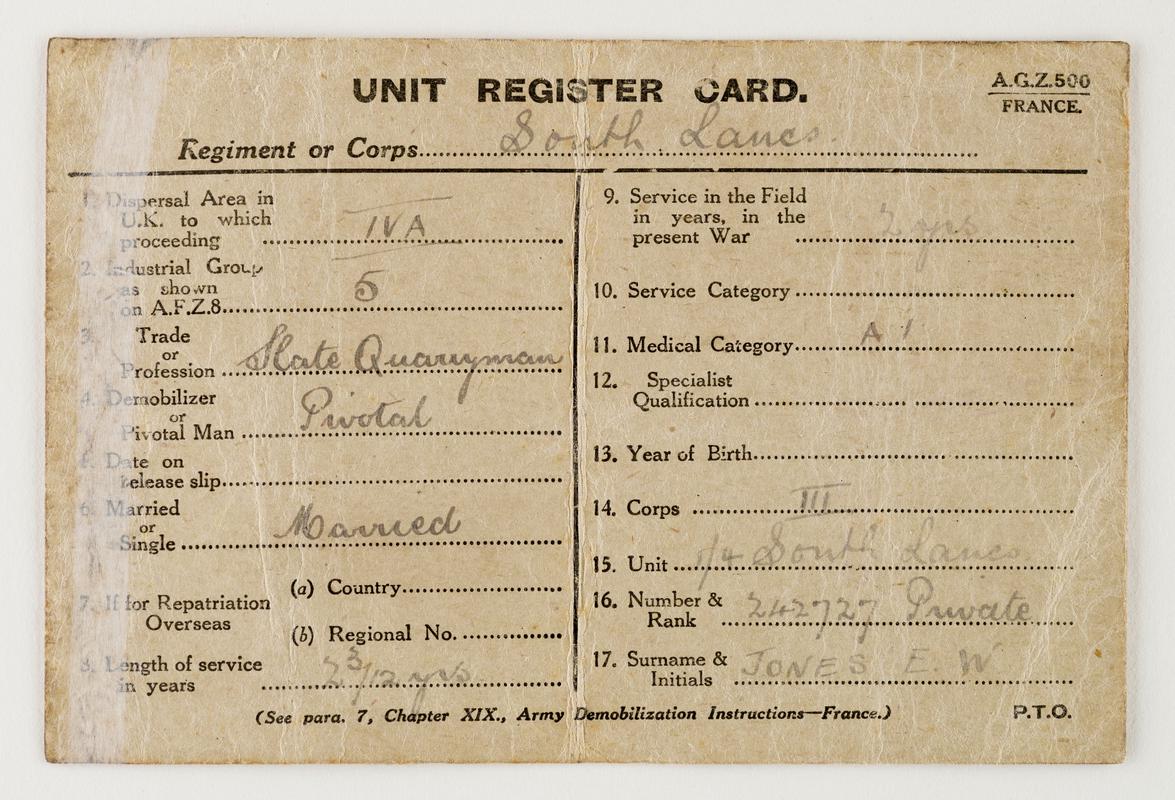 UNIT REGISTER CARD.
A.G.Z.500
FRANCE.
Regiment or Corps South Lancs.
1. Dispersal Area in
U.K. to which
proceeding IVA
2. Industrial Group
as shown
on A.F.Z.8. 5
3. Trade
or
Profession Slate Quarryman
4. Demobilizer
or
Pivotal Man Pivotal
5. Date on
release slip
6. Married
or
Single Married
7. If for Repatriation
Overseas
(a) Country
(b) Regional No.
8. Length of service
in years 2 3/12 yrs
9. Service in the Field
in years, in the
present War 2 yrs
10. Service Category
11. Medical Category A 1
12. Specialist
Qualification
13. Year of Birth
14. Corps III
15. Unit 1/4 South Lancs
16. Number &
Rank 242727 Private
17. Surname &
Initials JONES E. W
(See para. 7, Chapter XIX., Army Demobilization Instructions—France.)
P.T.O.